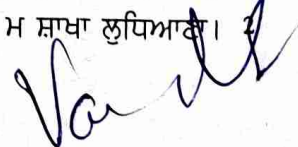 ਮ ਸ਼ਾਖਾ ਲੁਧਿਆਣਾ।